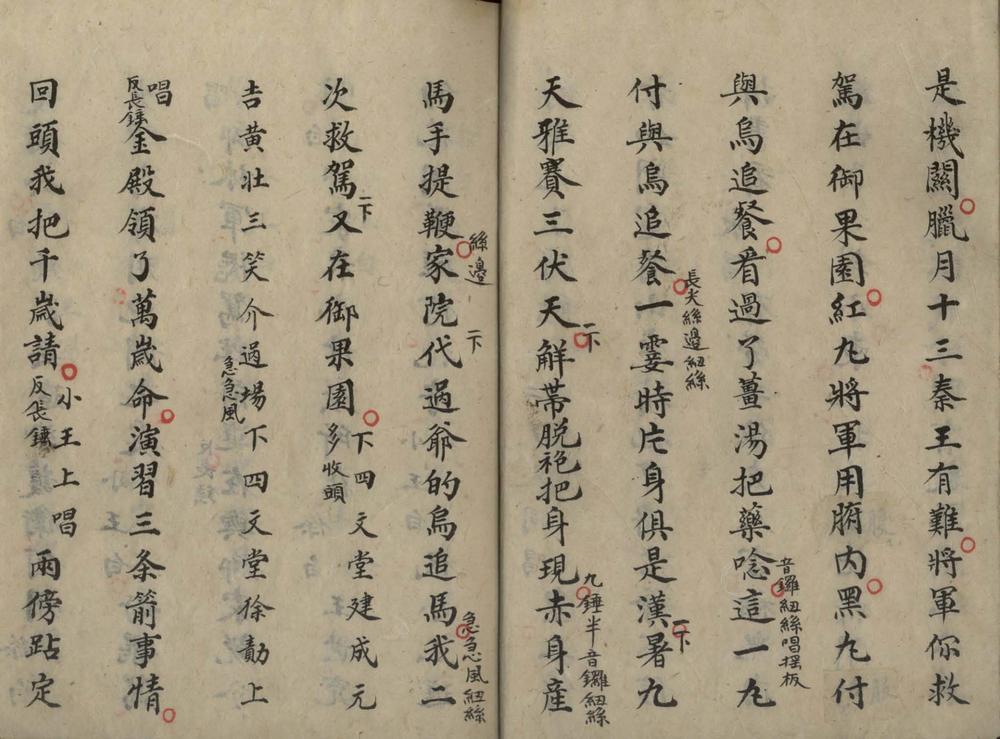 是機關臘月十三秦王有難將軍你救
駕在御果園紅九將軍用腑内黑九付
與烏追餐看過了薑湯把藥唸這一九
音鑼紐絲唱摇板
付與烏追餐一霎時片身俱是漢暑九
長夫絲邊紐絲
一下
天雅賽三伏天解蒂脱袍把身現赤身產
一下
九錘半音鑼紐絲
馬手提鞭家院代過爺的烏追馬我二
絲邊
一下
急急風紐絲
次救駕又在御果園下四文堂建成元
一下
多收頭
吉黄壯三笑介過場下四文堂徐勣上
急急風
唱金殿領了萬歲命演習三条箭事情
反長錘
回頭我把千歲請小王上唱兩傍跕定
反長錘